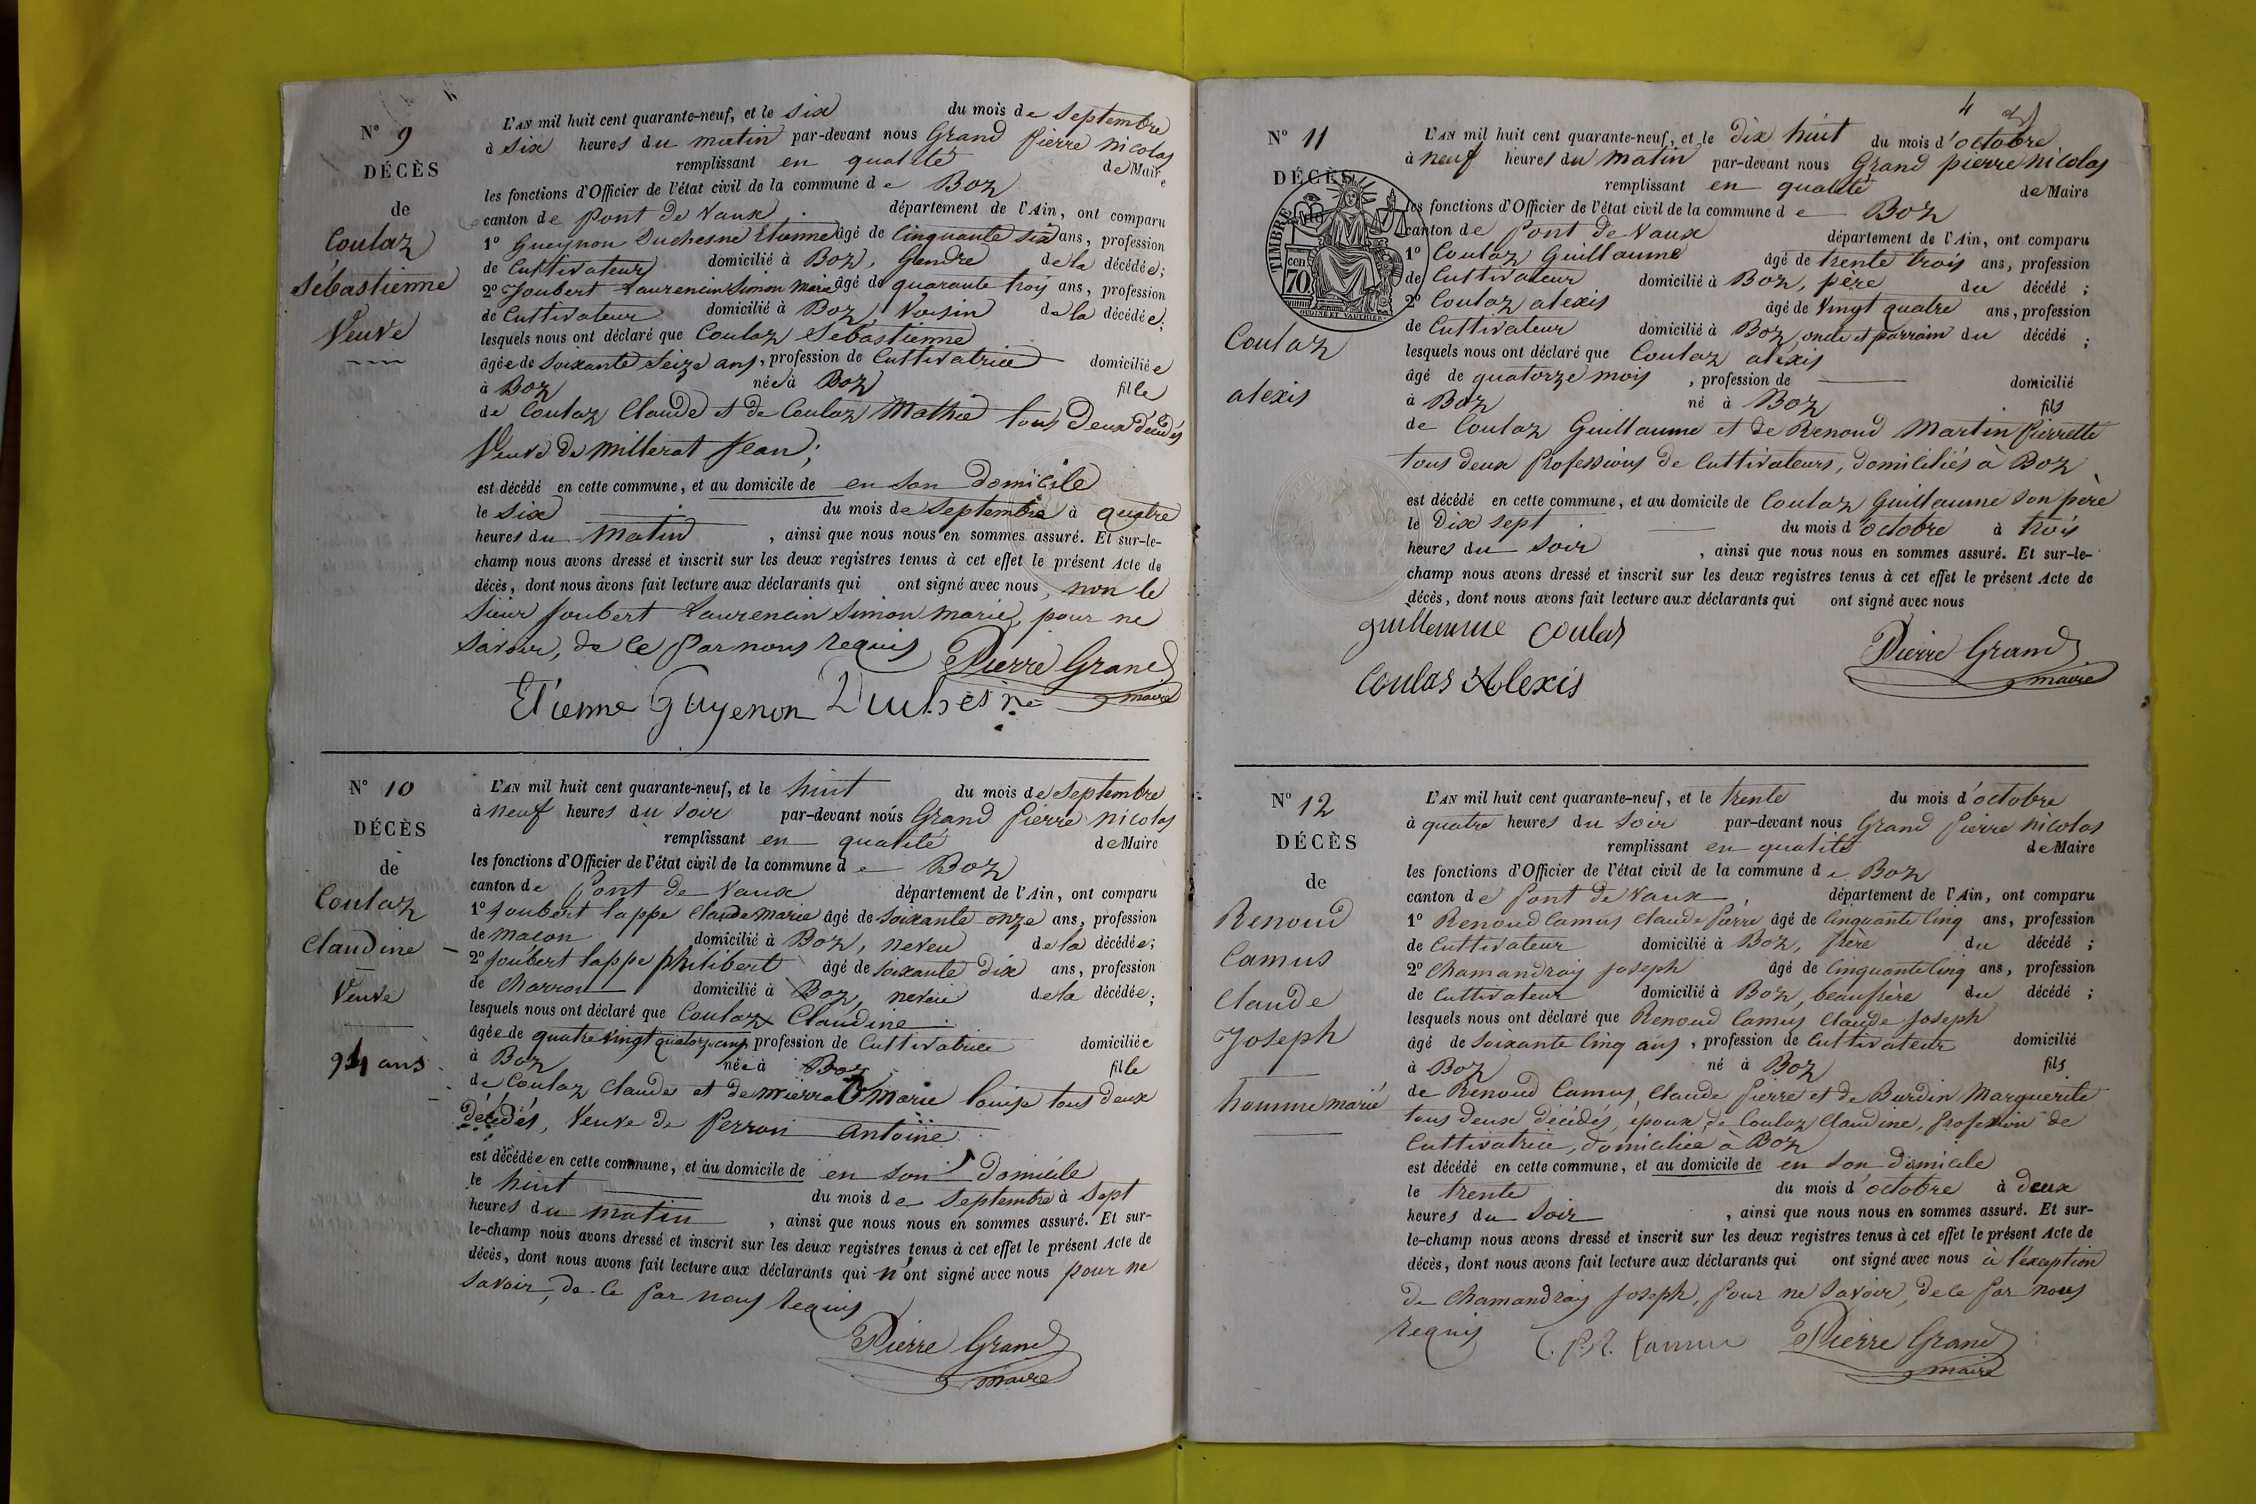 N° 9
DÉCÈS
de
Coulaz
Sébastienne
Veuve
L'AN mil huit cent quarante-neuf, et le six du mois de Septembre
à six heures du matin par-devant nous Grand pierre nicolas
remplissant en qualité de Maire
les fonctions d'Officier de l'état civil de la commune de Boz
canton de Pont de Vaux département de l'Ain, ont comparu
1° Gueynon Duchesne Etienne âgé de Cinquante Six ans, profession
de Cultivateur domicilié à Boz, Gendre de la décédée;
2° Joubert Laurencin Simon Marie âgé de quarante trois ans, profession
de Cultivateur domicilié à Boz, Voisin de la décédée;
lesquels nous ont déclaré que Coulaz Sébastienne
âgée de Soixante Seize ans, profession de Cultivatrice domiciliée
à Boz née à Boz fille
de Coulaz Claude et de Coulaz Mathie tous Deux décédés
Veuve de Millerat Jean;
est décédé en cette commune, et au domicile de en son Domicile
le Six du mois de Septembre à quatre
heures du Matin, ainsi que nous nous en sommes assuré. Et sur-le-
champ nous avons dressé et inscrit sur les deux registres tenus à cet effet le présent Acte de
décès, dont nous avons fait lecture aux déclarants qui ont signé avec nous, non le
Sieur Joubert Laurencin Simon marie, pour ne
Savoir, de ce par nous requis Pierre Grand
maire
Etienne Guyenon Duchesne
N° 10
DÉCÈS
de
Coulaz
Claudine
Veuve
94 ans
L'AN mil huit cent quarante-neuf, et le huit du mois de Septembre
à neuf heures du Soir par-devant nous Grand Pierre nicolas
remplissant en qualité de Maire
les fonctions d'Officier de l'état civil de la commune de Boz
canton de Pont de Vaux département de l'Ain, ont comparu
1° Joubert Lappe Claude Marie âgé de Soixante onze ans, profession
de maçon domicilié à Boz, neveu de la décédée;
2° Joubert Lappe philibert âgé de Soixante dix ans, profession
de Charron domicilié à Boz, neveu de la décédée;
lesquels nous ont déclaré que Coulaz Claudine
âgée de quatre vingt quatorze ans profession de Cultivatrice domiciliée
à Boz née à Boz fille
de Coulaz Claude et de marie Louise tous deux
décédés, Veuve de Perron Antoine
est décédée en cette commune, et au domicile de en son Domicile
le huit du mois de Septembre à Sept
heures du matin, ainsi que nous nous en sommes assuré. Et sur-
le-champ nous avons dressé et inscrit sur les deux registres tenus à cet effet le présent Acte de
décès, dont nous avons fait lecture aux déclarants qui n'ont signé avec nous pour ne
Savoir, de ce par nous requis
Pierre Grand
maire
4
N° 11
DÉCÈS
TIMBRE
70
Coulaz
alexis
L'AN mil huit cent quarante-neuf, et le dix huit du mois d'octobre
à neuf heures du matin par-devant nous Grand pierre nicolas
remplissant en qualité de Maire
les fonctions d'Officier de l'état civil de la commune de Boz
canton de Pont de Vaux département de l'Ain, ont comparu
1° Coulaz Guillaume âgé de trente trois ans, profession
de Cultivateur domicilié à Boz, père du décédé;
2° Coulaz alexis âgé de Vingt quatre ans, profession
de Cultivateur domicilié à Boz, oncle et parrain du décédé;
lesquels nous ont déclaré que Coulaz alexis
âgé de quatorze mois, profession de domicilié
à Boz né à Boz fils
de Coulaz Guillaume et de Renoud Martin Pierrette
tous deux Professions de Cultivateurs, domiciliés à Boz
est décédé en cette commune, et au domicile de Coulaz Guillaume son père
le Dix sept du mois d'octobre à trois
heures du Soir, ainsi que nous nous en sommes assuré. Et sur-le-
champ nous avons dressé et inscrit sur les deux registres tenus à cet effet le présent Acte de
décès, dont nous avons fait lecture aux déclarants qui ont signé avec nous
guillemme Coulas
Pierre Grand
maire
Coulas Alexis
N° 12
DÉCÈS
de
Renoud
Camus
Claude
Joseph
homme marié
L'AN mil huit cent quarante-neuf, et le trente du mois d'octobre
à quatre heures du Soir par-devant nous Grand Pierre nicolas
remplissant en qualité de Maire
les fonctions d'Officier de l'état civil de la commune de Boz
canton de Pont de Vaux, département de l'Ain, ont comparu
1° Renoud Camus Claude Pierre âgé de Cinquante Cinq ans, profession
de Cultivateur domicilié à Boz, frère du décédé;
2° Chamandray Joseph âgé de Cinquante Cinq ans, profession
de Cultivateur domicilié à Boz, beaufrère du décédé;
lesquels nous ont déclaré que Renoud Camus Claude Joseph
âgé de Soixante Cinq ans, profession de Cultivateur domicilié
à Boz né à Boz fils
de Renoud Camus Claude Pierre et de Burdin Marguerite
tous deux décédés, époux de Coulaz Claudine, Profession de
Cultivatrice, domiciliée à Boz
est décédé en cette commune, et au domicile de en son Domicile
le trente du mois d'octobre à deux
heures du Soir, ainsi que nous nous en sommes assuré. Et sur-
le-champ nous avons dressé et inscrit sur les deux registres tenus à cet effet le présent Acte de
décès, dont nous avons fait lecture aux déclarants qui ont signé avec nous à l'exception
de Chamandray Joseph, pour ne Savoir, de ce par nous
requis C. P. R. Camus Pierre Grand
maire